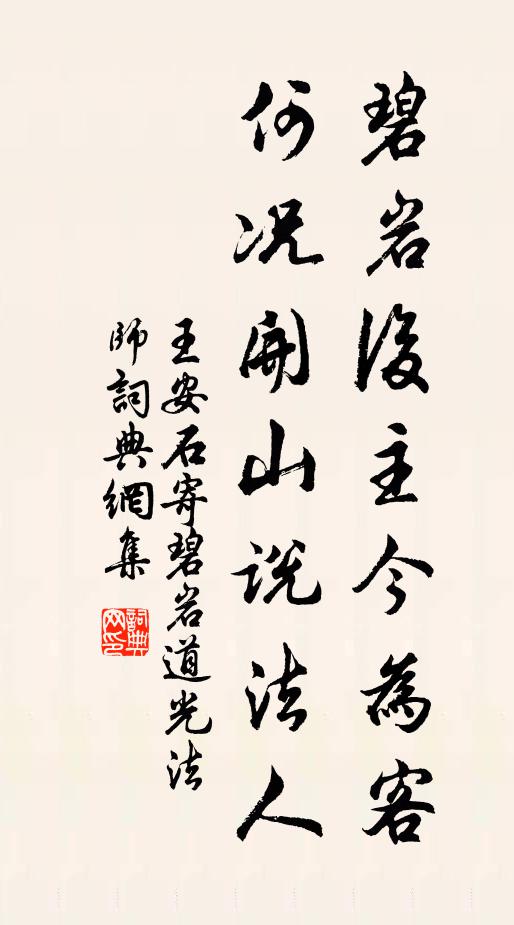 碧岩後主今為客
何况開山説法人
王安石寄碧岩道光法
師詞典網集
詞典
网印